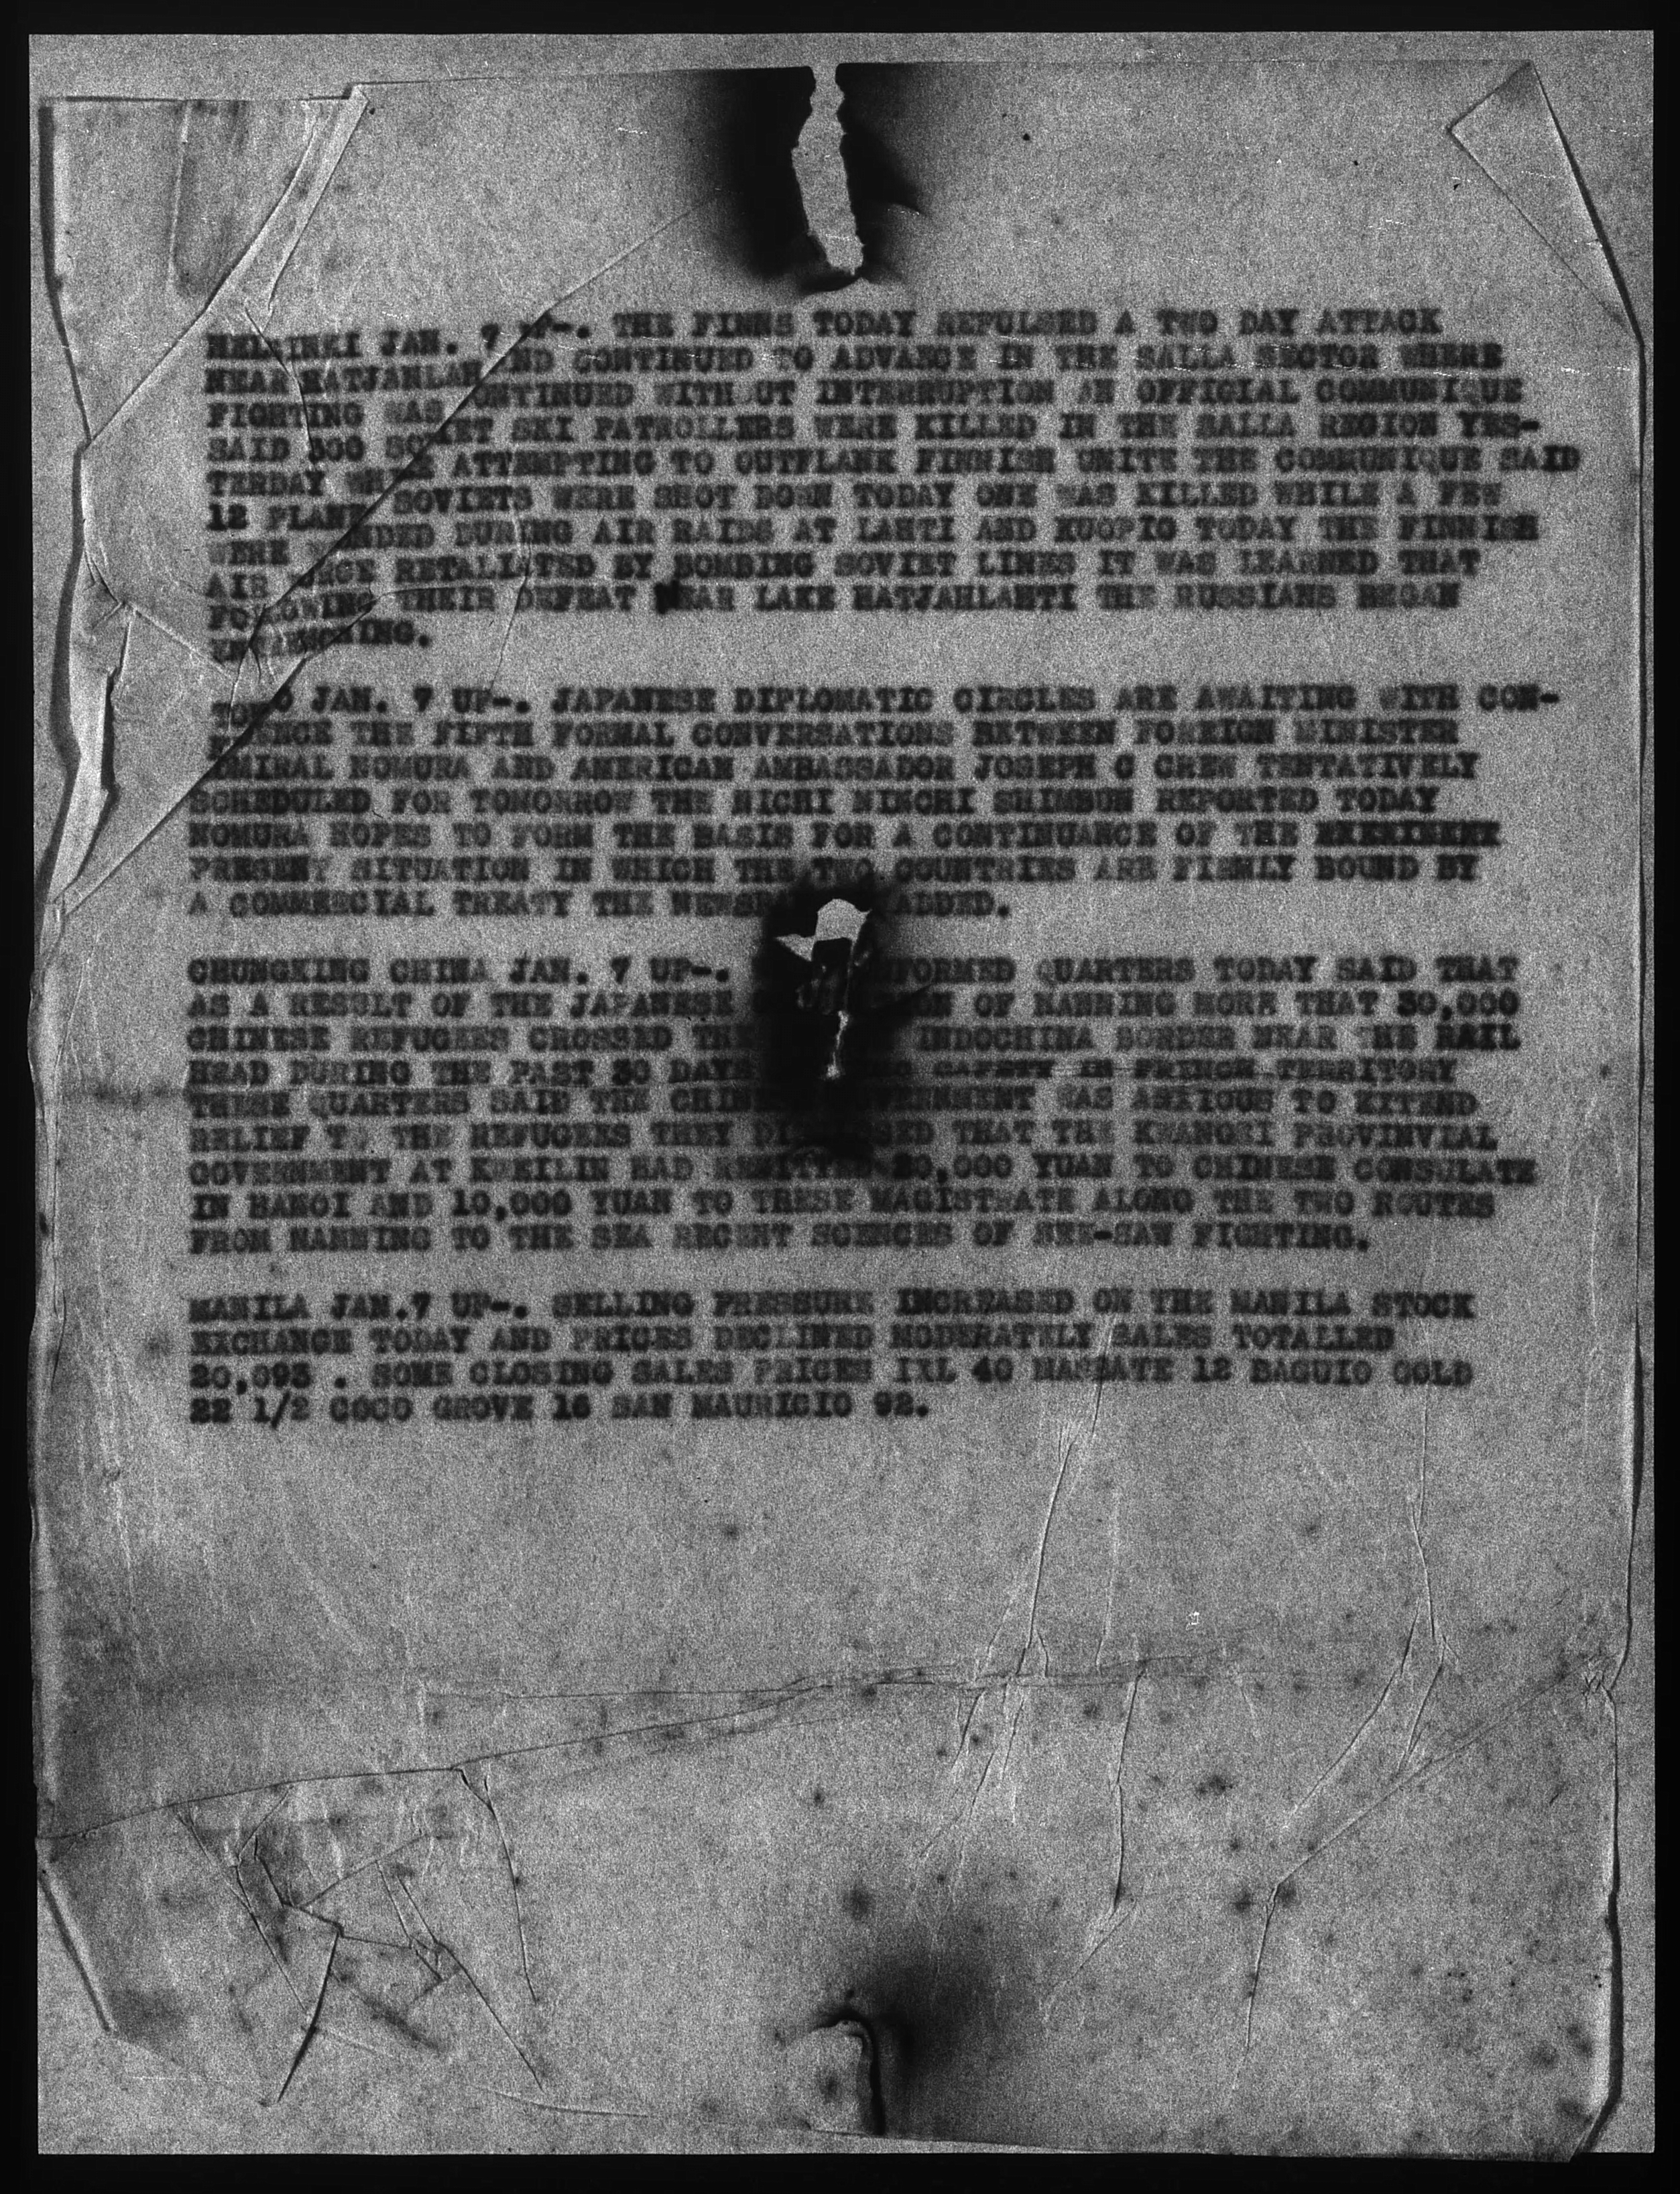 HELSINKI JAN. 7 UP-. THE FINNS TODAY REPULSED A TWO DAY ATTACK
NEAR HATJAHLAH AND CONTINUED TO ADVANCE IN THE SALLA SECTOR WHERE
FIGHTING WAS CONTINUED WITHOUT INTERRUPTION AN OFFICIAL COMMUNIQUE
SAID 300 SOVIET SKI PATROLLERS WERE KILLED IN THE SALLA REGION YES-
TERDAY WERE ATTEMPTING TO OUTFLANK FINNISH UNITS THE COMMUNIQUE SAID
12 PLANES SOVIETS WERE SHOT DOWN TODAY ONE WAS KILLED WHILE A FEW
WERE WOUNDED DURING AIR RAIDS AT LAHTI AND KUOPIO TODAY THE FINNISH
AIR FORCE RETALIATED BY BOMBING SOVIET LINES IT WAS LEARNED THAT
FOLLOWING THEIR DEFEAT NEAR LAKE HATJAHLAHTI THE RUSSIANS BEGAN
ENTRENCHING.
TOKYO JAN. 7 UP-. JAPANESE DIPLOMATIC CIRCLES ARE AWAITING WITH CON-
FIDENCE THE FIFTH FORMAL CONVERSATIONS BETWEEN FOREIGN MINISTER
ADMIRAL NOMURA AND AMERICAN AMBASSADOR JOSEPH C GREW TENTATIVELY
SCHEDULED FOR TOMORROW THE NICHI NICHI SHIMBUN REPORTED TODAY
NOMURA HOPES TO FORM THE BASIS FOR A CONTINUANCE OF THE
PRESENT SITUATION IN WHICH THE TWO COUNTRIES ARE FIRMLY BOUND BY
A COMMERCIAL TREATY THE ADDED.
CHUNGKING CHINA JAN. 7 UP-. INFORMED QUARTERS TODAY SAID THAT
AS A RESULT OF THE JAPANESE OF NANNING MORE THAT 30,000
CHINESE REFUGEES CROSSED THE INDOCHINA BORDER NEAR THE RAIL
HEAD DURING THE PAST 30 DAYS SAFETY IN FRENCH TERRITORY
THESE QUARTERS SAID THE CHINESE GOVERNMENT WAS ANXIOUS TO EXTEND
RELIEF TO THE REFUGEES THEY THAT THE KWANGSI PROVINVIAL
GOVERNMENT AT KWEILIN HAD REMITTED 20,000 YUAN TO CHINESE CONSULATE
IN HANOI AND 10,000 YUAN TO THESE MAGISTRATE ALONG THE TWO ROUTES
FROM NANNING TO THE SEA RECENT SCENCES OF SEE-SAW FIGHTING.
MANILA JAN.7 UP-. SELLING PRESSURE INCREASED ON THE MANILA STOCK
EXCHANGE TODAY AND PRICES DECLINED MODERATELY SALES TOTALLED
20,093 . SOME CLOSING SALES PRICES IXL 40 MASBATE 12 BAGUIO GOLD
22 1/2 COCO GROVE 16 SAN MAURICIO 92.